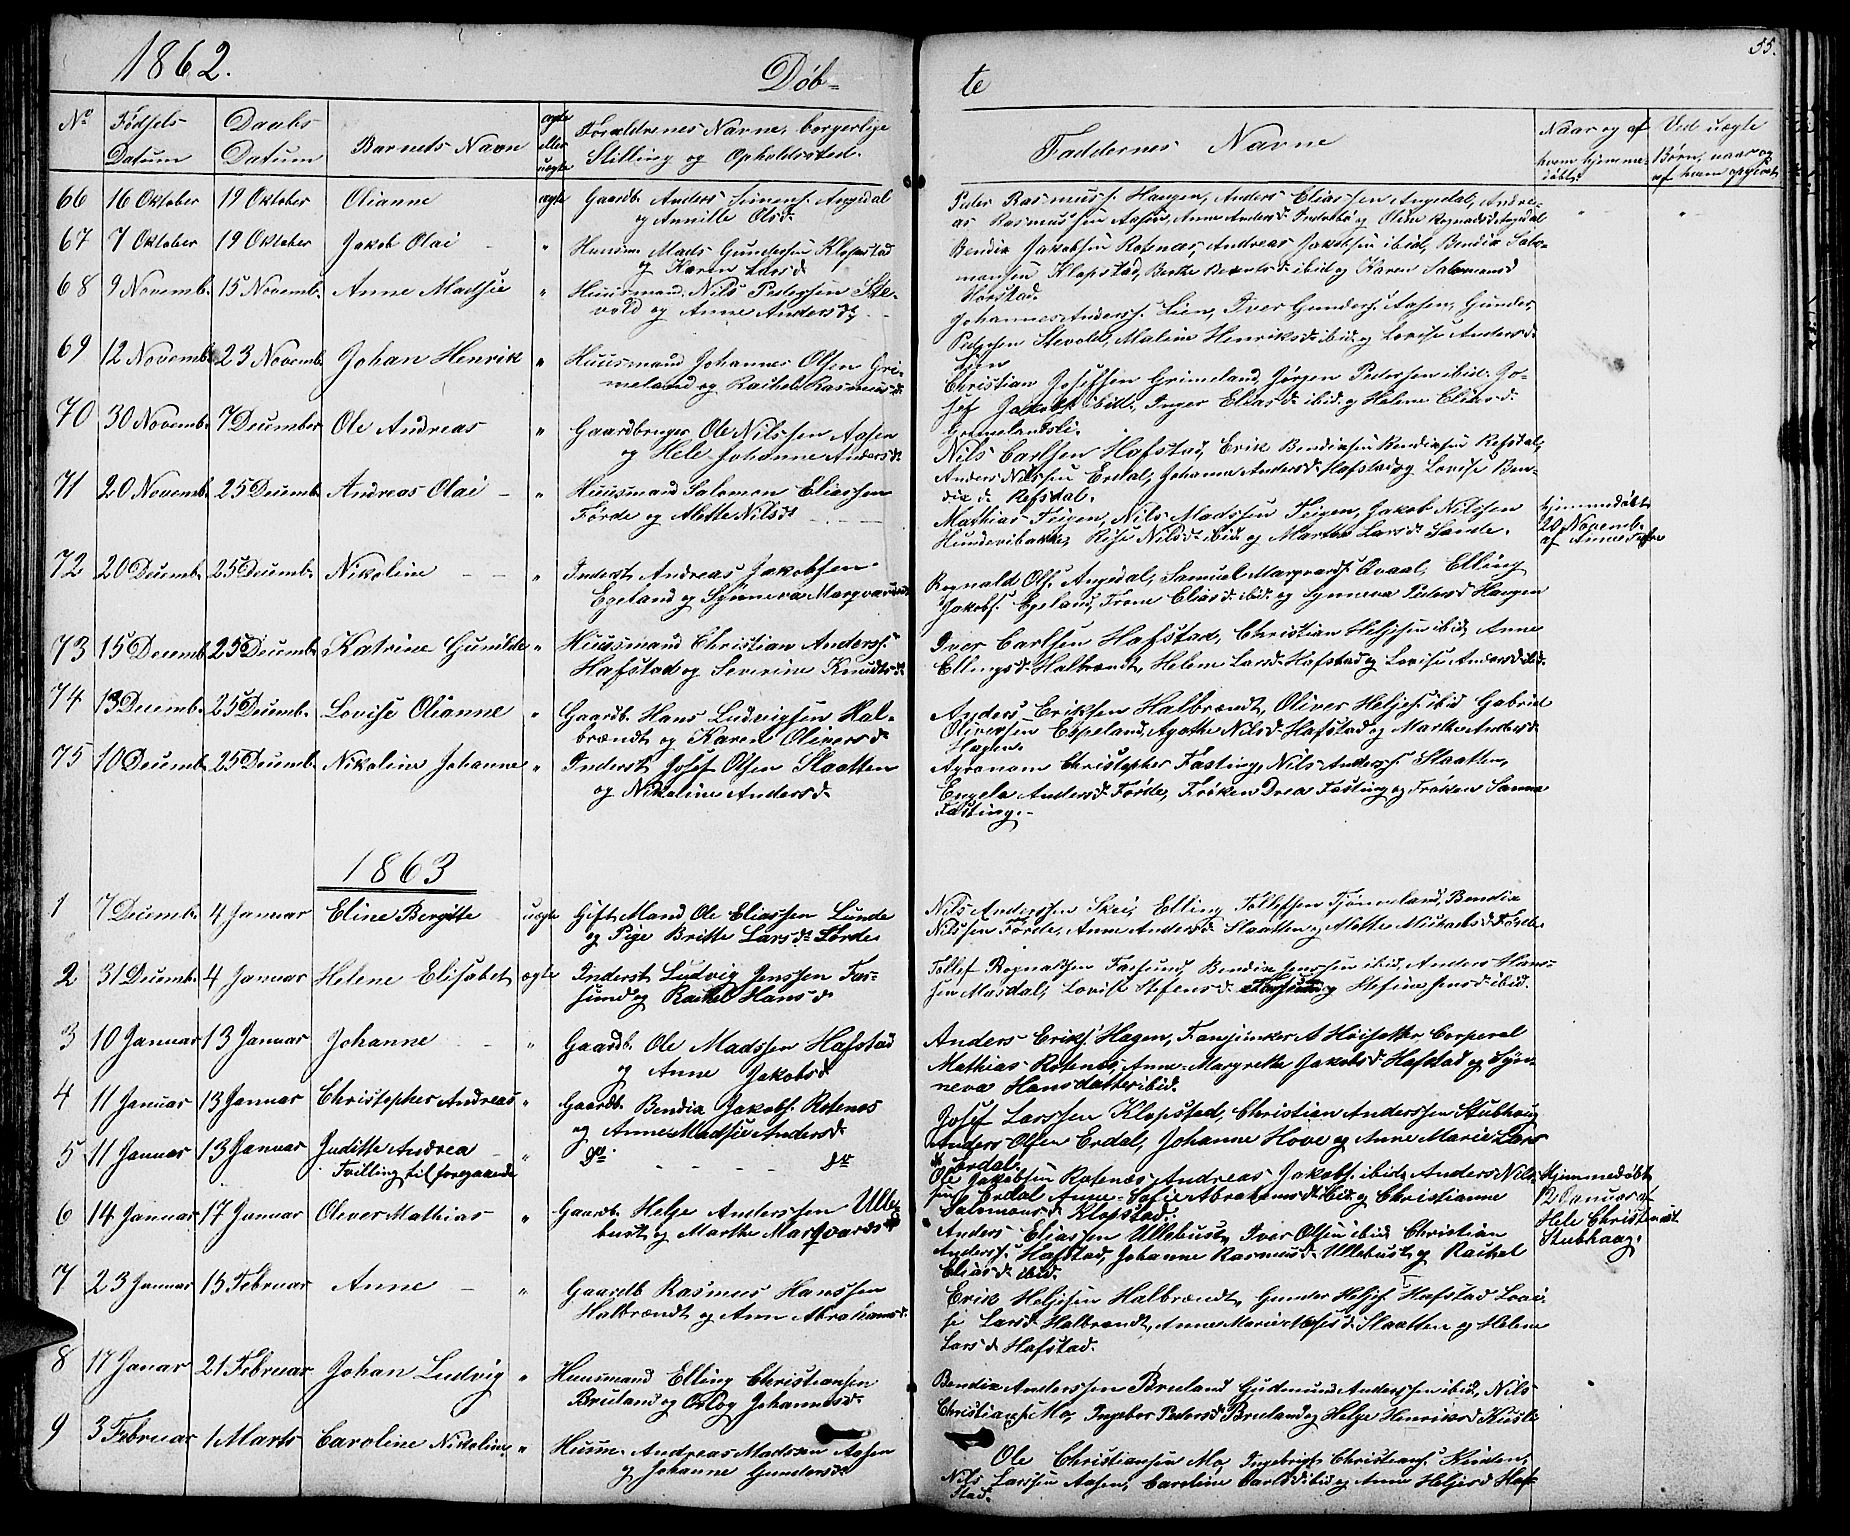 1862.
Døb-
te
55.
No
Fødsels Datum
Daabs Datum
Barnets Navn
ægte eller uægte
Forældrenes Navne, borgerlige Stilling og Opholdssted.
Faddernes Navne
Naar og af hvem hjemmedøbt.
Ved uægte Børn, naar og af hvem opgivet
66 16 Oktober 19 Oktober Olianne ægte Gaardb. Anders Angedal
og Annille Olsd.
Peder Rasmuss. Haugen, Anders Eliassen Angedal, Andre-
as Rasmussen Aasen, Anne Andersd. og Oline Rognaldsd. Angedal
67 7 Oktober 19 Oktober Jakob Olai " Huusm. Mads Gundersen Klopstad
og Karen Larsd.
Bendix Jakobsen Rotenæs, Andreas Jakobsen ibid, Bendix Salo-
monsen Klopstad, Berthe Berntsd. ibid og Karen Salomonsd
Horstad.
68 9 Novemb. 15 Novemb. Anne Madsie " Huusmand Nils Pedersen Ste-
vold og Anne Andersd.
Johannes Anderss. Lien, Iver Gunders. Aasen, Gunder
Pedersen Stevold, Malene Henriksd. ibid. og Lovise Andersd.
Lien
69 12 Novemb. 23 Novemb. Johan Henrik " Huusmand Johannes Olsen Gri-
meland og Rachel Rasmusd.
Christian Josefsen Grimeland, Jørgen Pedersen ibid. Jo-
sef Jakobs. ibid. Inger Eliasd. ibid. og Helene Eliasd.
Grimelandsli.
70 30 Novemb. 7 Decumber Ole Andreas " Gaardbruger Ole Nilssen Aasen
og Hele Johanne Andersd.
Nils Carlsen Hafstad, Erik Bendixsen Refsdal,
Anders Nilssen Erdal, Johanne Andersd. Hafstad og Lovise Ben-
dix d. Refsdal.
71 20 Novemb. 25 Decumb. Andreas Olai " Huusmand Salomon Eliassen
Førde og Alette Nilsd.
Mathias Teigen, Nils Madssen Teigen, Jakob Nilssen
Hundvebakke, Nilsd. ibid og Marthe Larsd. Sande.
hjemmedøbt
20 Novemb.
af Anne
72 20 Decumb. 25 Decumb. Nikoline " Inderst Andreas Jakobsen
Egeland og Synneva Marqvardsd
Rognald Ols. Angedal, Samuel Marqvards. Qvaal, Elling
Jakobs. Egeland, Eliasd. ibid. og Synneva Pedersd Haugen
73 15 Decemb. 25 Decumb. Katrine Gunilde " Huusmand Christian Anderss.
Hafstad og Severine Knudsd.
Iver Carlsen Hafstad, Christian Heljesen ibid, Anne
Ellingsd. Halbrændt, Helene Larsd. Hafstad og Lovise Andersd. ibid.
74 13 Decemb. 25 Decumb. Lovise Olianne " Gaardb. Hans Ludvigsen Hal-
brændt og Karen Olivers d.
Anders Eriksen Halbrændt, Oliver Heljes. ibid Gabriel
Oliversen Espeland, Agathe Nilsd. Hafstad og Marthe Andersd.
Hagen.
75 10 Decumb. 25 Decumb. Nikoline Johanne " Inderst Josef Olsen Slaatten
og Nikoline Andersd.
Agronom Christopher Fasting, Nils Anderss. Slaatten,
Engela Andersd. Førde, Frøken Drea Fasting og Frøken Sanna
Fasting.
1863
1 7 Decumb. 4 Januar Eline Bergitte uægte Gift Mand Ole Eliassen Lunde
og Pige Britte Larsd. Førde
Nils Anderssen Skei, Elling Tollefsen Tjønneland, Bendix
Nilssen Førde, Anne Andersd. Slaatten og Alette Michaelsd. Førde.
2 31 Decumb. 4 Januar Helene Elisabet ægte Inderst Ludvig Jenssen Far-
sund og Rachel Hans d.
Tollef Rognaldsen Farsund, Bendix Jenssen ibid, Anders Hans-
sen Masdal, Lovise Stefensd. Farsund og Stefine Jensd. ibid.
3 10 Januar 13 Januar Johanne " Gaardb. Ole Madssen Hafstad
og Anne Jakobsd
Anders Eriks. Hagen, Fanejunker A Høisæther Corperal
Mathias Rotenes, Anne Margrethe Jakobsd. Hafstad og Syn-
neva Hansdatter ibid.
4 11 Januar 13 Januar Christopher Andreas " Gaardb. Bendix Jakobs. Rotenes
og Anne Madsie Andersd.
Josef Larssen Klopstad, Christian Anderssen Stubhaug
Anders Olsen Erdal, Johanne Hove og Anne Marie Lars
d. Erdal.
5 11 Januar 13 Januar Juditte Andrea " do - - - - do
Tvilling til foregaaende
Ole Jakobsen Rotenæs, Andreas Jakobs. ibid, Anders Nils-
sen Erdal, Anne Sofie Abrahamsd. ibid. og Christianne
Salomonsd. Klopstad.
Hjemmedøbt
12 Januar af
Hele Christensd.
Stubhaug.
6 14 Januar 17 Januar Oliver Mathias " Gaardb. Helge Anderssen Ulle-
bust og Marthe Marqvardsd
Anders Eliassen Ullebust, Iver Olsen ibid Christian
Anderss. Hafstad, Johanne Rasmusd. Ullebust og Rachel
Eliasd. ibid.
7 23 Januar 15 Februar Anne " Gaardb Rasmus Hanssen
Halbrændt og Anne Abrahamsd.
Erik Heljesen Halbrændt, Gunder Heljes. Hafstad Lovi-
se Larsd. Halbrændt, Anne Marie Mosesd. Slaatten og Helene
Larsd. Hafstad.
8 17 Januar 21 Februar Johan Ludvig " Huusmand Elling Christiansen
Bruland og Oslog Johannesd.
Bendix Anderssen Bruland Gudmund Anderssen ibid, Nils
Christians. Mo, Ingebor Pedersd. Bruland og Helje Henriksd. Kusle
9 3 Februar 1 Marts Caroline Nikoline " Huusm. Andreas Madssen Aasen
og Johanne Gundersd.
Ole Christiansen Mo, Ingebrigt Christians. Kinden,
Nils Larssen Aasen, Caroline Carlsd. ibid og Anne Heljesd Haf-
stad.